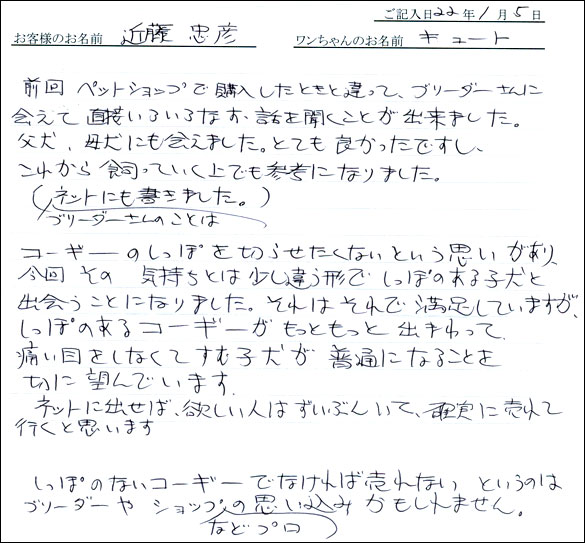 ご記入日22年1月5日
お客様のお名前 近藤 忠彦 ワンちゃんのお名前 キュート
前回 ペットショップで購入したときと違って、ブリーダーさんに
会えて 直接いろいろなお話を聞くことが出来ました。
父犬、母犬にも会えました。とても良かったですし、
これから飼っていく上でも参考になりました。
(ネットにも書きました。)
ブリーダーさんのことは
コーギーのしっぽを切らせたくないという思いがあり、
今回その 気持ちとは少し違う形でしっぽのある子犬と
出会うことになりました。それはそれで満足していますが、
しっぽのあるコーギーがもっともっと出まわって
痛い目をしなくてすむ子犬が普通になることを
切に望んでいます。
ネットに出せば、欲しい人はずいぶんいて、確実に売れて
行くと思います
しっぽのないコーギーでなければ売れないというのは
ブリーダーやショップの思い込みかもしれません。
などプロ